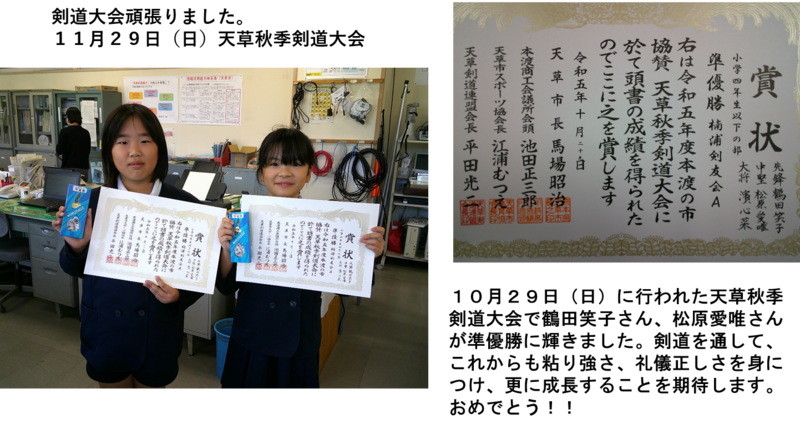 剣道大会頑張りました。
１１月２９日（日）天草秋季剣道大会
賞状
小学四年生以下の部
準優勝 楠浦剣友会A
先鋒 鶴田笑子
中堅 松原愛唯
大将 濱心菜
右は令和五年度本渡の市
協賛 天草秋季剣道大会に
於て頭書の成績を得られた
のでここに之を賞します
令和五年十月二十日
天草市長 馬場昭治
本渡商工会議所会頭 池田正三郎
天草市スポーツ協会長 江浦むつえ
天草剣道連盟会長 平田光二
賞状
賞状
１０月２９日（日）に行われた天草秋季
剣道大会で鶴田笑子さん、松原愛唯さん
が準優勝に輝きました。剣道を通して、
これからも粘り強さ、礼儀正しさを身に
つけ、更に成長することを期待します。
おめでとう！！